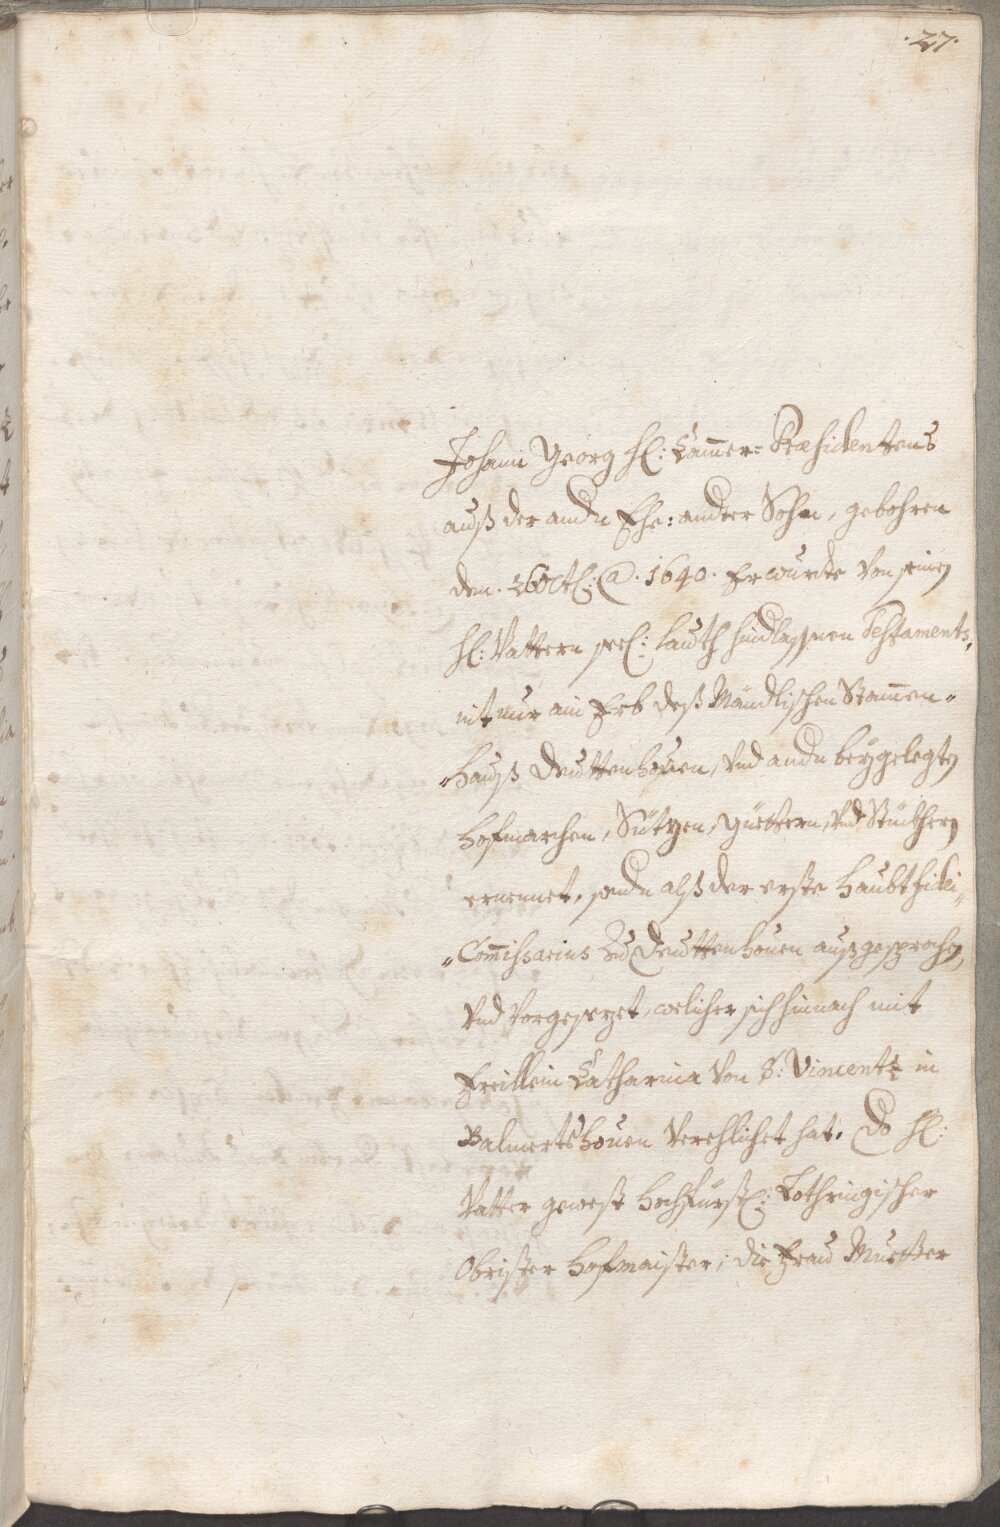 .27.
Johann Georg H: Cam̄er=Præsidentens
auß der andn Ehe: andter Sohn, gebohren
den. 26 Oct: A͠o. 1640. Er wurde von seinen
H: Vattern seel: lauth hindlassnen Testaments,
nit nur ain Erb deß Mändlischen Stam̄en„
„hauß Deuttenhouen, Vnd andn beygelegten
hofmarchen, Sützen, Güettern, Vnd
ernennet, sondn alß der erste haubt Fidei„
„Com̄issarius Zu Deuttenhouen außgesprochen,
Vnd Vorgesezet, welicher sich hinnach mit
Freillein Catharina Von S: Vincentz in
Balmertshouen Verehlichet hat. Do H:
Vatter geweßt hochfürstl: Lothringischer
Obrister hofmaister; die Frau Muetter